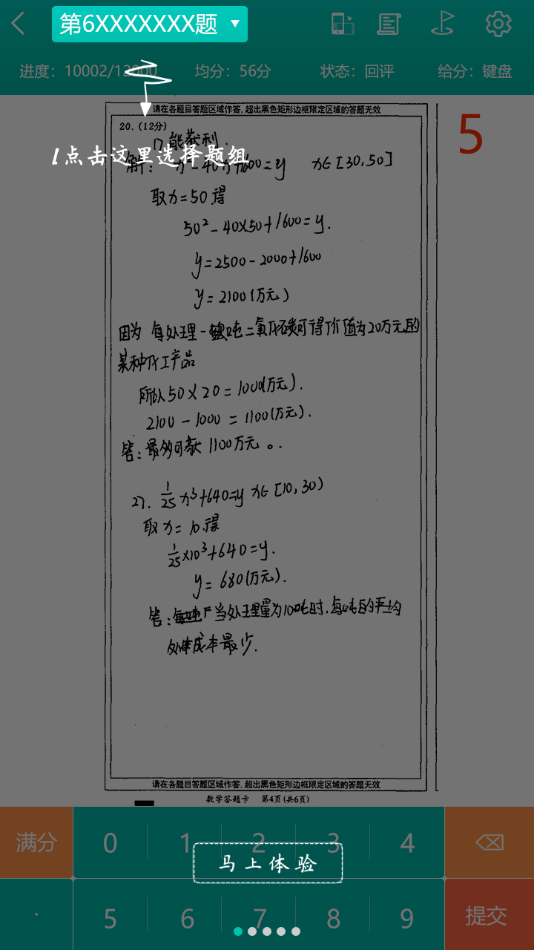 第6XXXXXXX题
进度：10002/12000 均分：56分 状态：回评 给分：键盘
请在各题目答题区域作答，超出黑色矩形边框限定区域的答题无效
5
20.（12分）
能获利.
1点击这里选择题组
x∈[30,50]
取x=50得
50²-40×50+1600=y.
y=2500-2000+1600
y=2100(万元)
因为 每处理一吨二氧化碳可得价值为20万元的
某种化工产品
所以50×20=1000(万元).
2100-1000=1100(万元).
答:最多可获 1100万元。.
27. 1/25 x³+640=y x∈[10,30)
取x=10得
1/25×10³+640=y.
y=680(万元).
当处理量为10吨时,每吨的平均
处理成本最少.
请在各题目答题区域作答，超出黑色矩形边框限定区域的答题无效
数学答题卡 第4页(共6页)
满分 0 1 2 3 4
马上体验
. 5 6 7 8 9 提交